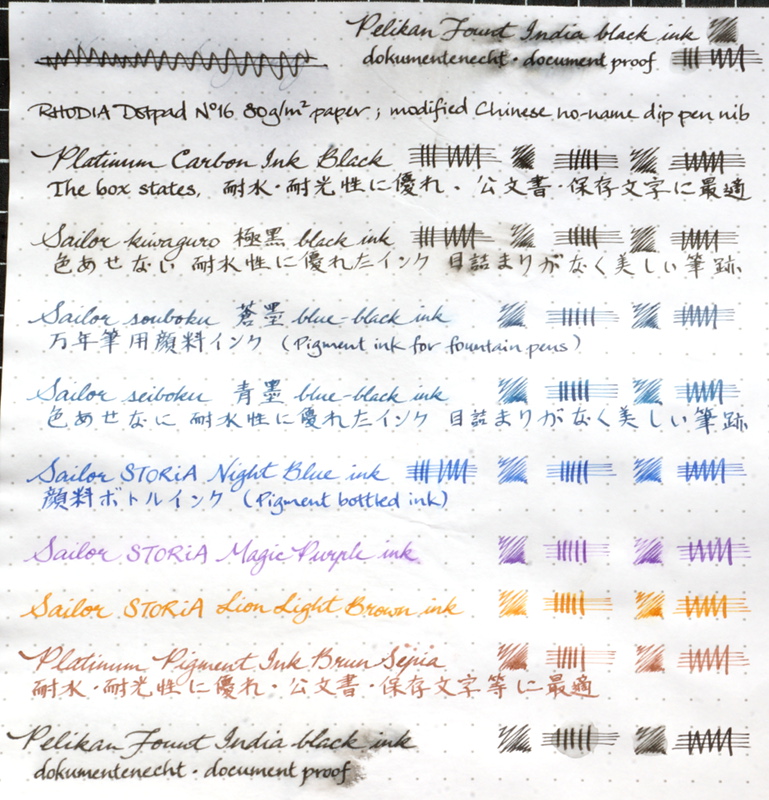 Pelikan Fount India black ink
dokumentenecht · document proof
RHODIA Dotpad Nº16 80g/m² paper ; modified Chinese no-name dip pen nib
Platinum Carbon Ink Black
The box states, 耐水・耐光性に優れ、公文書・保存文字に最適
Sailor kiwaguro 極黒 black ink
色あせない 耐水性に優れたインク 目詰まりがなく美しい筆跡
Sailor souboku 蒼墨 blue-black ink
万年筆用顔料インク (Pigment ink for fountain pens)
Sailor seiboku 青墨 blue-black ink
色あせなに 耐水性に優れたインク 目詰まりがなく美しい筆跡
Sailor STORiA Night Blue ink
顔料ボトルインク (Pigment bottled ink)
Sailor STORiA Magic Purple ink
Sailor STORiA Lion Light Brown ink
Platinum Pigment Ink Brun Sépia
耐水・耐光性に優れ・公文書・保存文字等に最適
Pelikan Fount India black ink
dokumentenecht · document proof